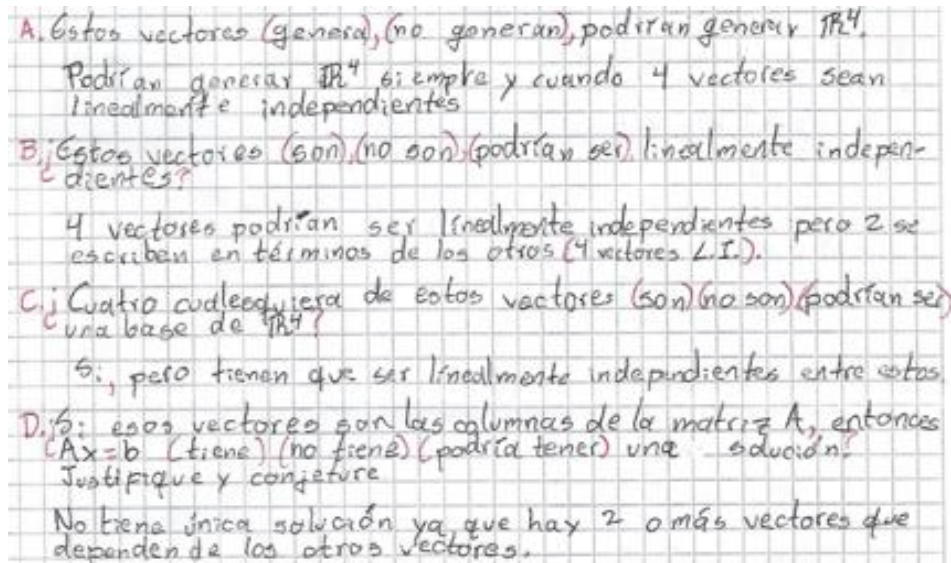 A. Estos vectores (genera), (no generan), podrían generar ℝ⁴.
Podrían generar ℝ⁴ siempre y cuando 4 vectores sean
linealmente independientes
B. ¿Estos vectores (son), (no son), (podrían ser) linealmente indepen-
dientes?
4 vectores podrían ser linealmente independientes pero 2 se
escriben en términos de los otros (4 vectores L.I.).
C. ¿Cuatro cualesquiera de estos vectores (son) (no son) (podrían ser)
una base de ℝ⁴?
Si, pero tienen que ser linealmente independientes entre estos
D. ¿Si esos vectores son las columnas de la matriz A, entonces
Ax=b (tiene) (no tiene) (podría tener) una solución?
Justifique y conjeture
No tiene única solución ya que hay 2 o más vectores que
dependen de los otros vectores.